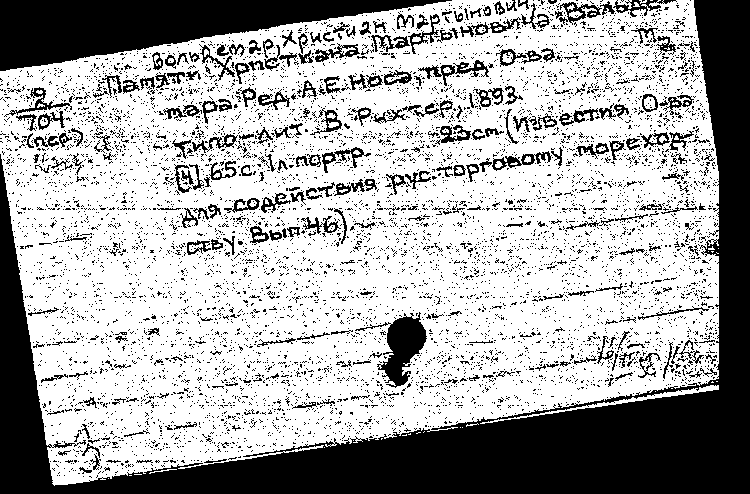 Вольдемар, Христиан Мартынович,
Памяти Христиана Мартыновича Вальде-
мара. Ред. А.Е. Носа, пред. О-ва. М.,
типо-лит. В. Рихтер, 1893.
[4], 65 с., 1 л. портр. 23 см. (Известия О-ва
для содействия рус. торговому мореход-
ству. Вып. 46)
9
704
(пер)